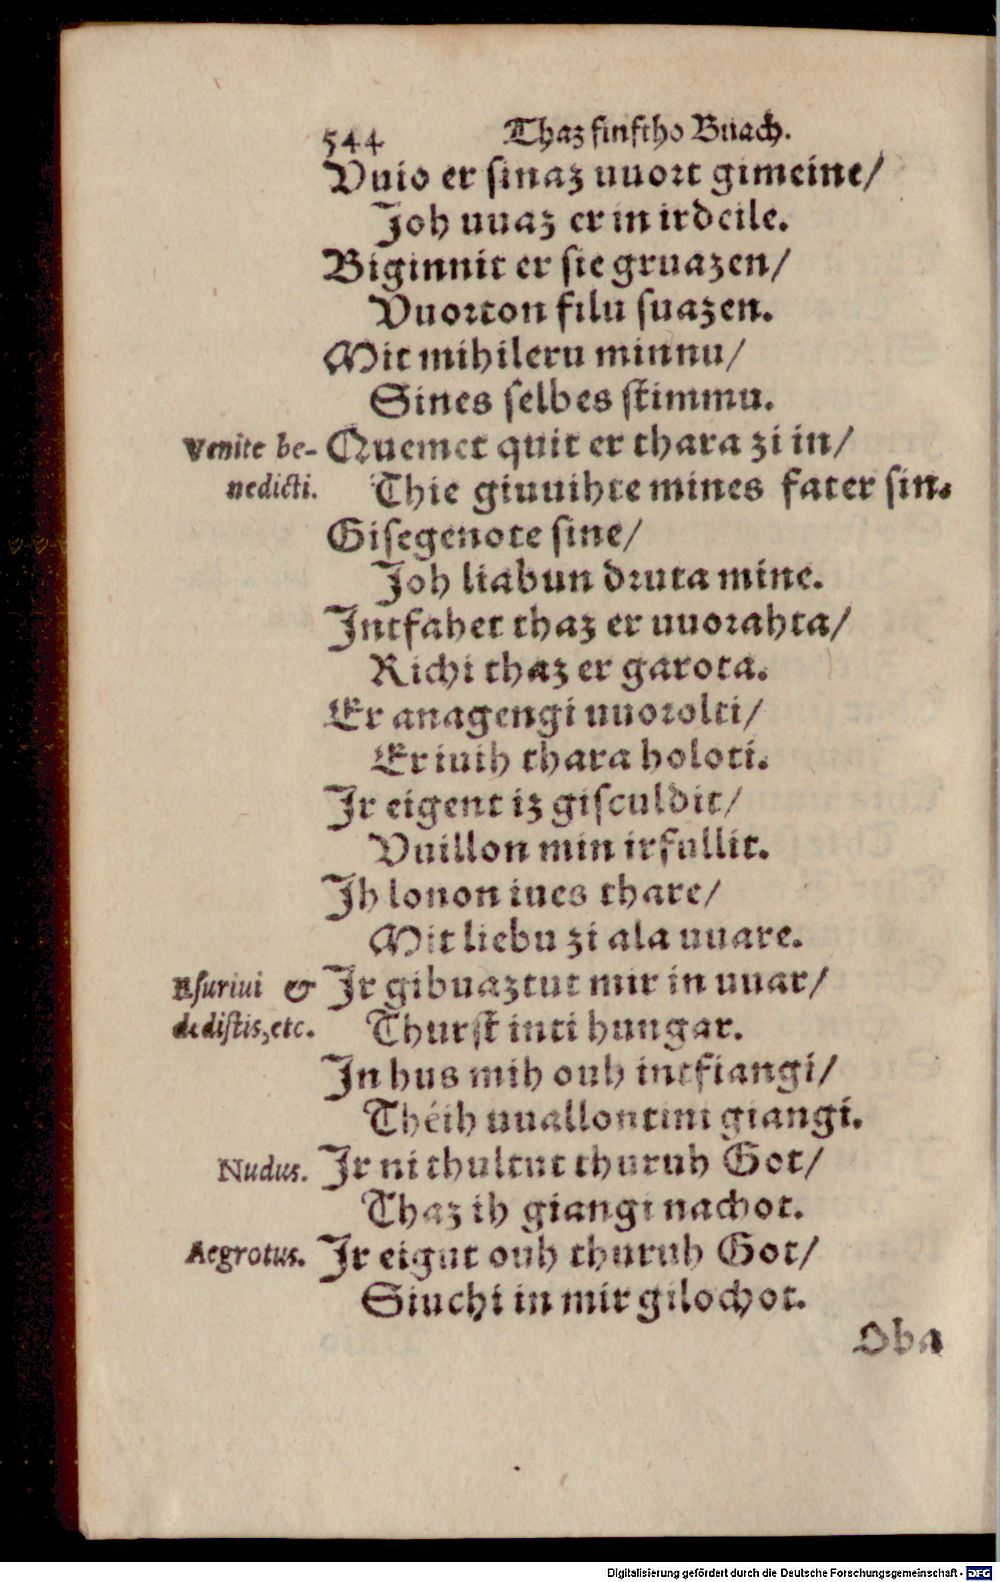 544 Thaz finftho Buach.
Vuio er sinaz uuort gimeine/
Joh uuaz er in irdeile.
Biginnit er sie gruazen/
Vuorton filu suazen.
Mit mihileru minnu/
Sines selbes stimmu.
Venite be- Quemet quit er thara zi in/
nedicti. Thie giuuihte mines fater sin.
Gisegenote sine/
Joh liabun druta mine.
Intfahet thaz er uuorahta/
Richi thaz er garota.
Er anagengi uuorolti/
Er iuih thara holoti.
Ir eigent iz gisculdit/
Vuillon min irfullit.
Ih lonon iues thare/
Mit liebu zi ala uuare.
Esuriui & Ir gibuaztut mir in uuar/
dedistis, etc. Thurst inti hungar.
In hus mih ouh intfiangi/
Théih uuallontini giangi.
Nudus. Ir ni thultut thuruh Got/
Thaz ih giangi nachot.
Aegrotus. Ir eigut ouh thuruh Got/
Siuchi in mir gilochot.
Oba
Digitalisierung gefördert durch die Deutsche Forschungsgemeinschaft - DFG